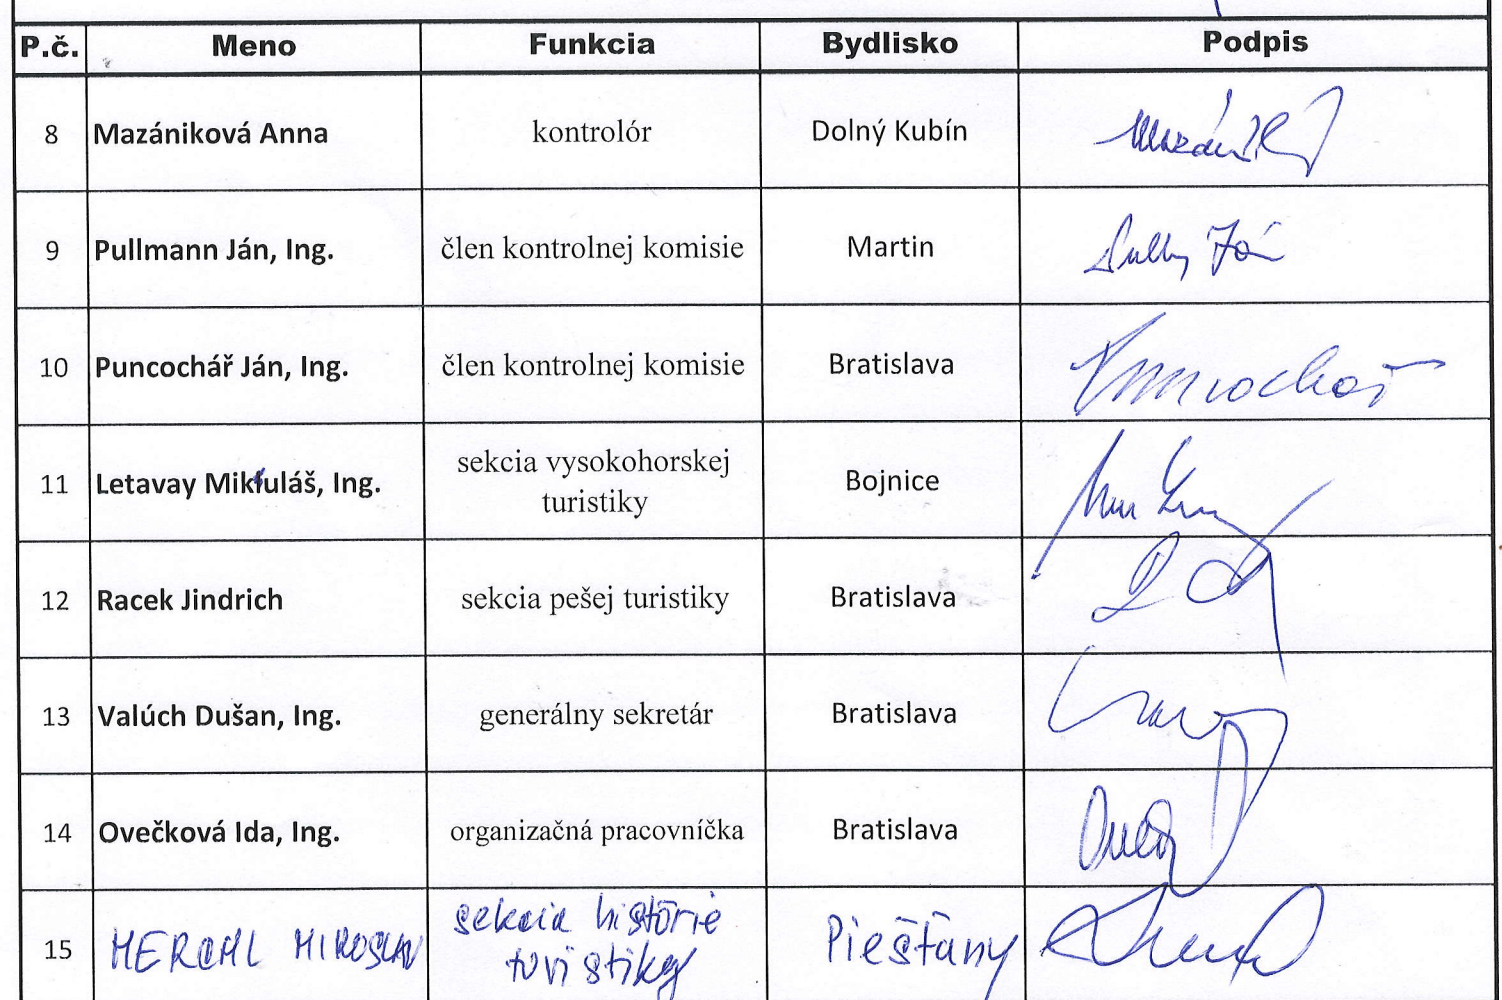 P.č. Meno Funkcia Bydlisko Podpis
8 Mazániková Anna kontrolór Dolný Kubín
9 Pullmann Ján, Ing. člen kontrolnej komisie Martin
10 Puncochář Ján, Ing. člen kontrolnej komisie Bratislava Puncochář
11 Letavay Mikuláš, Ing. sekcia vysokohorskej
turistiky Bojnice
12 Racek Jindrich sekcia pešej turistiky Bratislava
13 Valúch Dušan, Ing. generálny sekretár Bratislava
14 Ovečková Ida, Ing. organizačná pracovníčka Bratislava
15 MIROSLAV sekcia histórie
turistiky Piešťany